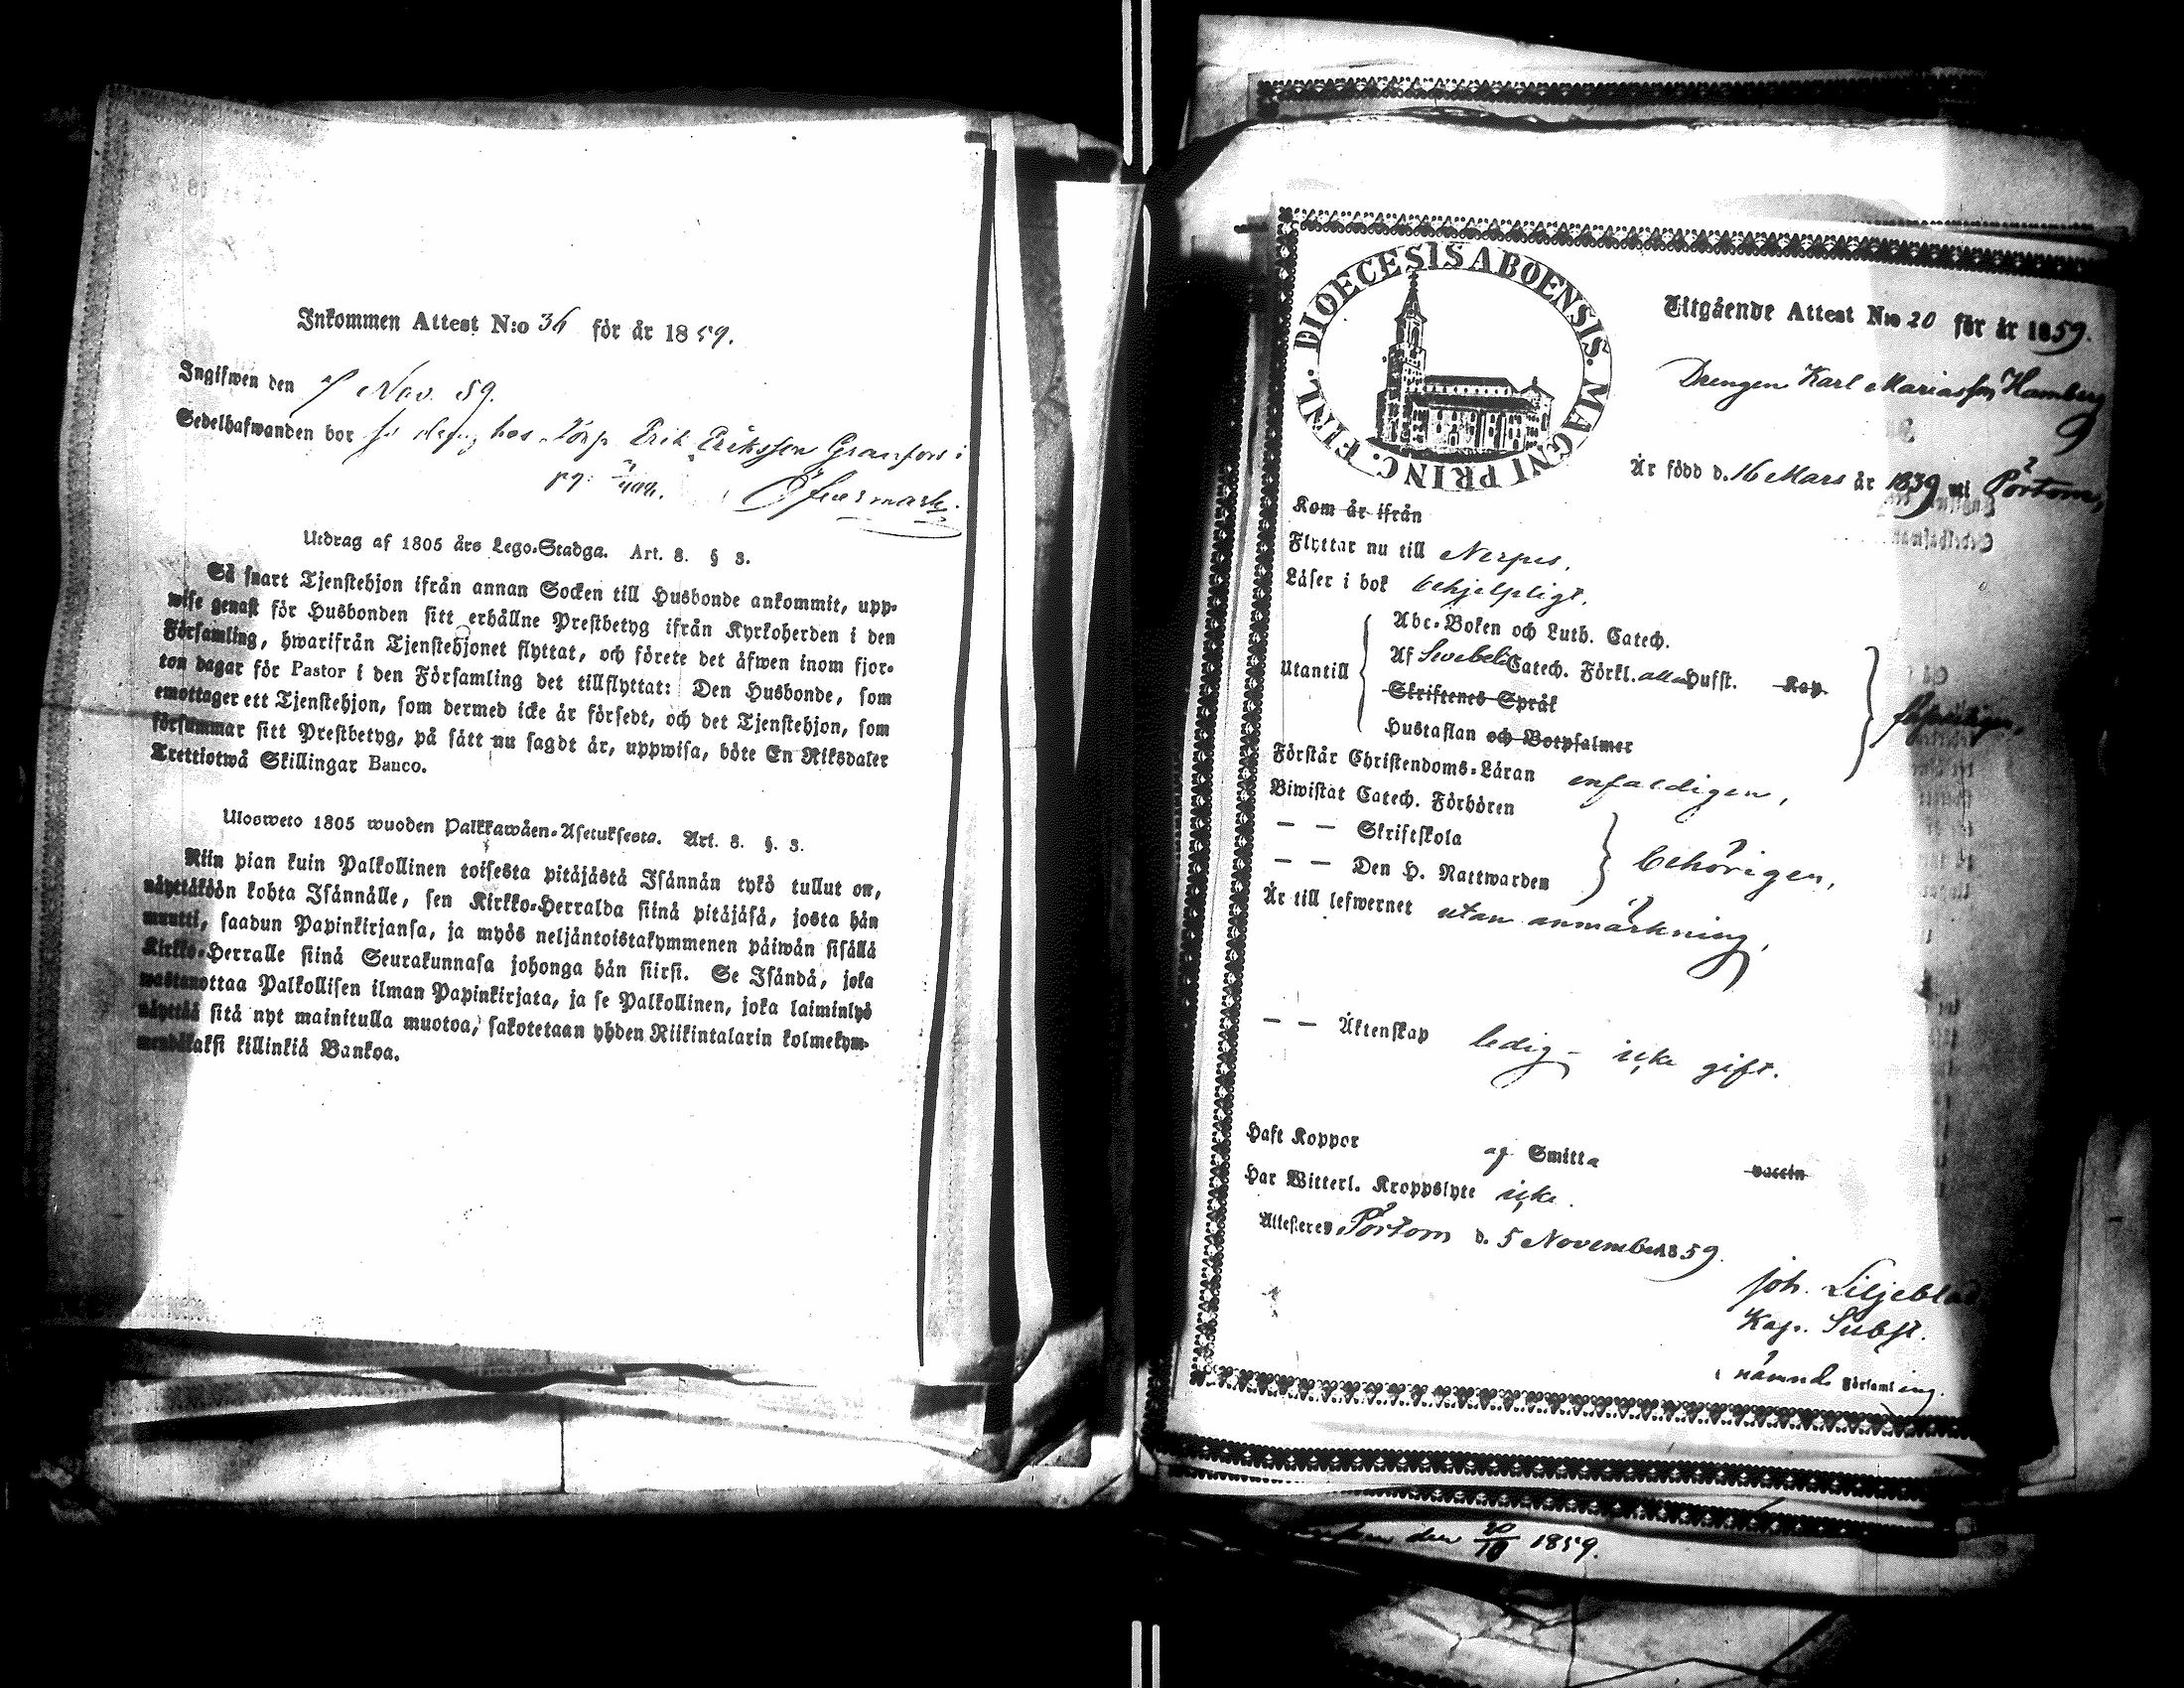 Inkommen Attest N:o 36 för år 1859.
Ingifwen den Nov. 59.
Sedelhafwanden bor hos Torp. Erik Eriksson Granfors i
pg:
Öfvermark.
Utdrag af 1805 års Lego-Stadga. Art. 8. § 3.
Så snart Tjenstehjon ifrån annan Socken till Husbonde ankommit, upp-
wise genast för Husbonden sitt erhållne Prestbetyg ifrån Kyrkoherden i den
Församling, hwarifrån Tjenstehjonet flyttat, och förete det äfwen inom fjor-
ton dagar för Pastor i den Församling det tillflyttat: Den Husbonde, som
emottager ett Tjenstehjon, som dermed icke är försedt, och det Tjenstehjon, som
försummar sitt Prestbetyg, på sätt nu sagdt är, uppwisa, böte En Riksdaler
Trettiotwå Skillingar Banco.
Ulosweto 1805 wuoden Palkkawäen-Asetuksesta. Art. 8. §. 3.
Niin pian kuin Palkollinen toisesta pitäjästä Isännän tykö tullut on,
näyttäköön kohta Isännälle, sen Kirkko-Herralda siinä pitäjäsä, josta hän
muutti, saadun Papinkirjansa, ja myös neljäntoistakymmenen päiwän sisällä
Kirkko-Herralle siinä Seurakunnasa johonga hän siirsi. Se Isändä, joka
wastanottaa Palkollisen ilman Papinkirjata, ja se Palkollinen, joka laiminlyö
näyttää sitä nyt mainitulla muotoa, sakotetaan yhden Riikintalarin kolmekym-
mendäkaksi killinkiä Bankoa.
DIOECESIS ABOENSIS. MAGNI PRINC. FINL.
Utgående Attest N:o 20 för år 1859.
Drengen Karl Mariasson Hamberg
Är född d. 16 Mars år 1839 uti Pörtom,
Kom år ifrån
Flyttar nu till Nerpes,
Läser i bok behjelpligt,
Utantill
Abc-Boken och Luth. Catech.
Af Swebeli Catech. Förkl. alla Hufst. Kap.
Skriftenes Språk
Hustaflan och Botpsalmer
Förstår Christendoms-Läran enfaldigen,
Biwistat Catech. Förhören
— — Skriftskola
— — Den H. Nattwarden
behörigen,
Är till lefwernet utan anmärkning,
— — Äktenskap ledig – icke gift.
Haft Koppor af Smitta vaccin
Har Witterl. Kroppslyte icke.
Attesteres Pörtom d. 5 November 1859.
Joh. Liljeblad
Kap. Subst.
i nämnde Församling.
den 1859.